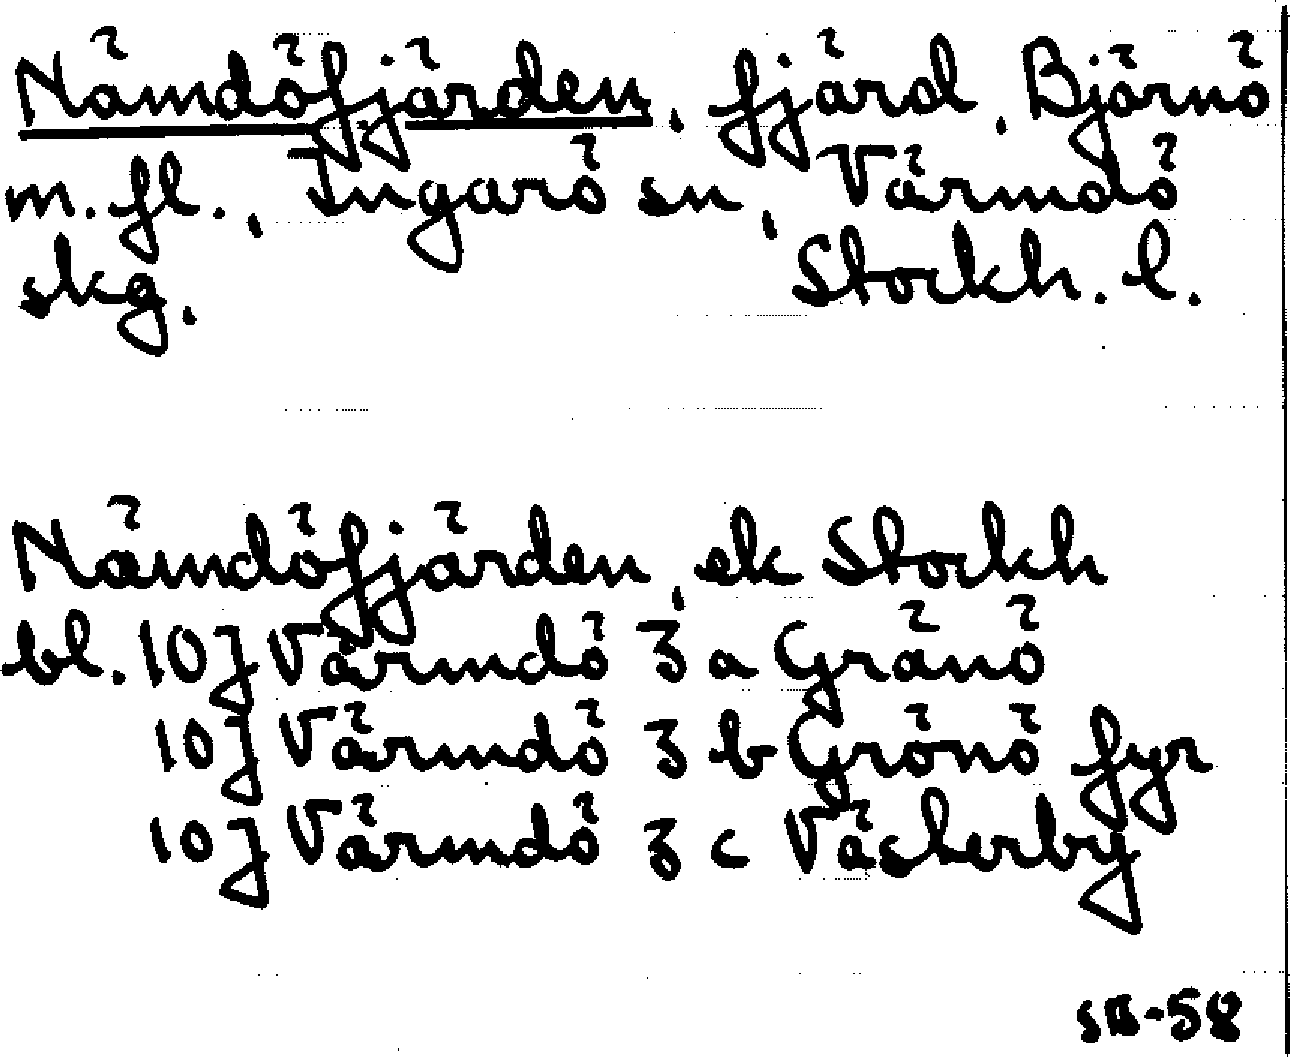 Nämdöfjärden, fjärd, Björnö
m.fl., Ingarö sn, Värmdö
skg. Stockh. l.
Nämdöfjärden, ek Stockh
bl. 10J Värmdö 3 a Gränö
10J Värmdö 3 b Grönö fyr
10J Värmdö 3 c Västerby
SB-58